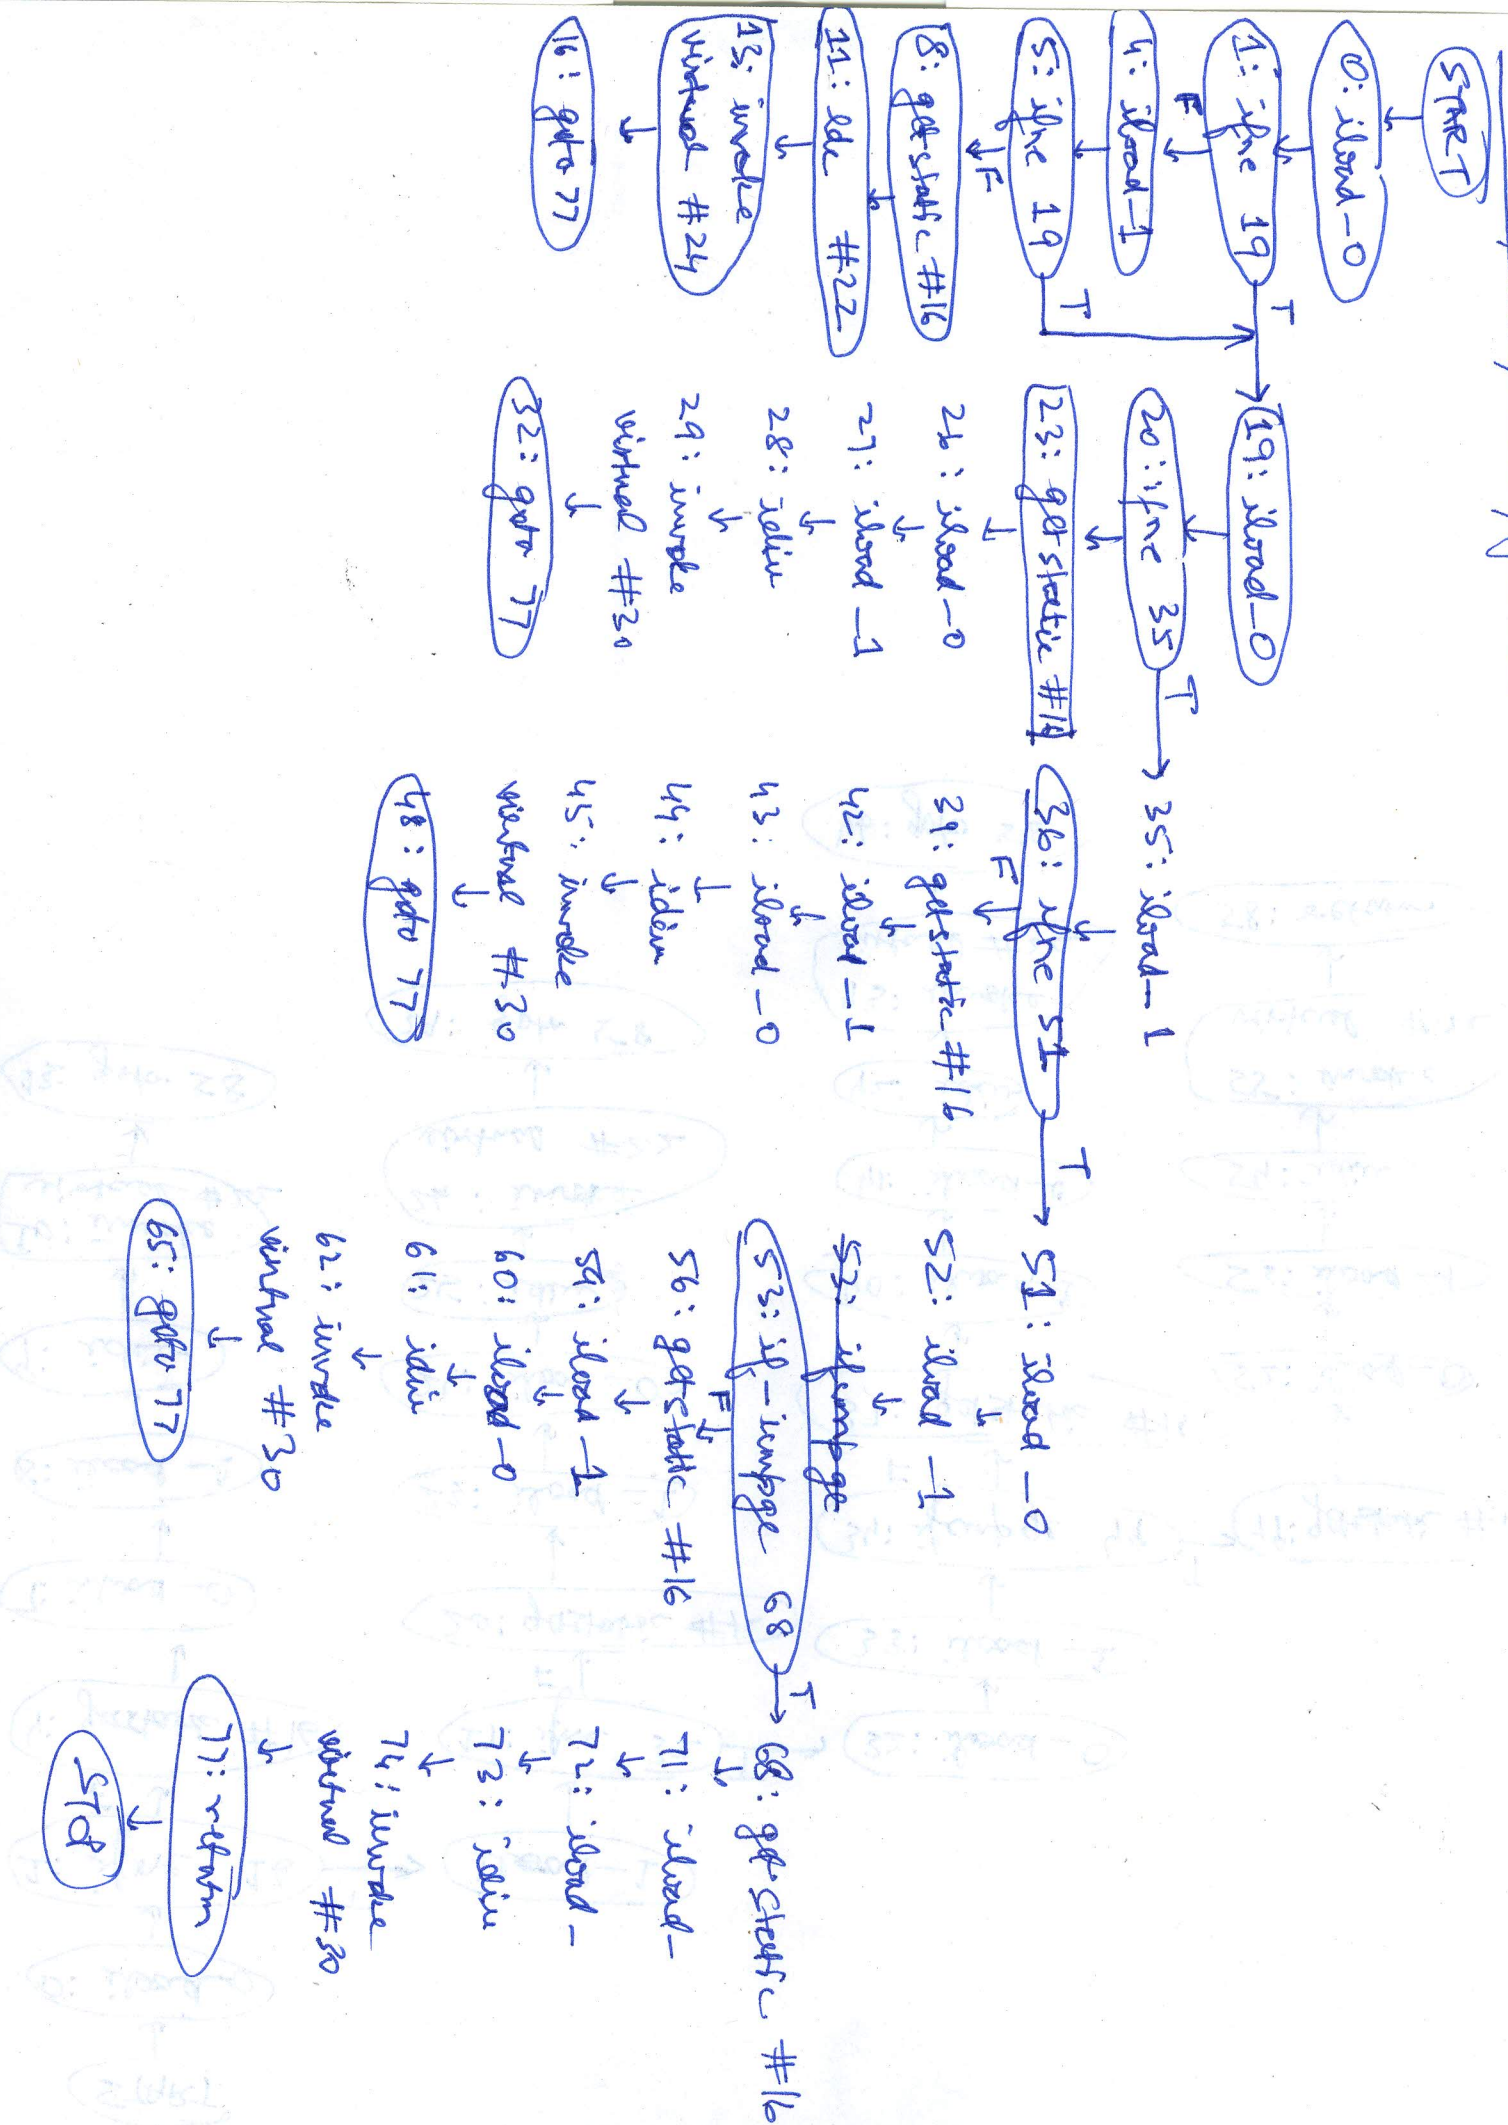 START
0: iload_0
1: ifne 19
T
F
4: iload_1
5: ifne 19
T
F
8: getstatic #16
11: ldc #22
13: invoke
virtual #24
16: goto 77
19: iload_0
20: ifne 35
T
23: getstatic #16
26: iload_0
27: iload_1
28: idiv
29: invoke
virtual #30
32: goto 77
35: iload_1
36: ifne 51
T
F
39: getstatic #16
42: iload_1
43: iload_0
44: idiv
45: invoke
virtual #30
48: goto 77
51: iload_0
52: iload_1
53: ifcmpge
53: if_icmpge 68
T
F
56: getstatic #16
59: iload_1
60: iload_0
61: idiv
62: invoke
virtual #30
65: goto 77
68: getstatic #16
71: iload_
72: iload_
73: idiv
74: invoke
virtual #30
77: return
STOP